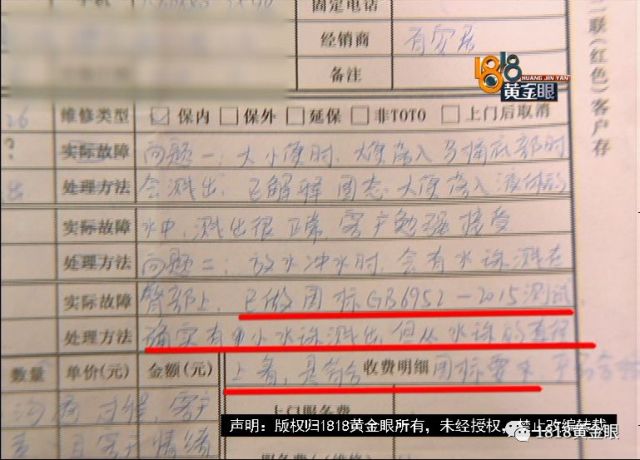 固定电话
经销商
有容居
备注
1818
HUANG JIN YAN
黄金眼
二联(红色)客户存
维修类型 保内 保外 延保 非TOTO 上门后取消
实际故障 问题一:大小便时,大便落入马桶底部时
处理方法 会溅出,已解释 大便落入
实际故障 水中,溅出很正常 客户勉强接受
处理方法 问题二:放水冲水时,会有水珠溅在
实际故障 臀部上,已做国标GB6952-2015测试,
处理方法 确实有 小水珠溅出,但从水珠的直径
数量 单价(元) 金额(元) 上看,是符合 收费明细 国标要求
沟通过程,客户
上门服务费
声明:版权归1818黄金眼所有,未经授权,禁止改编转载
1818黄金眼